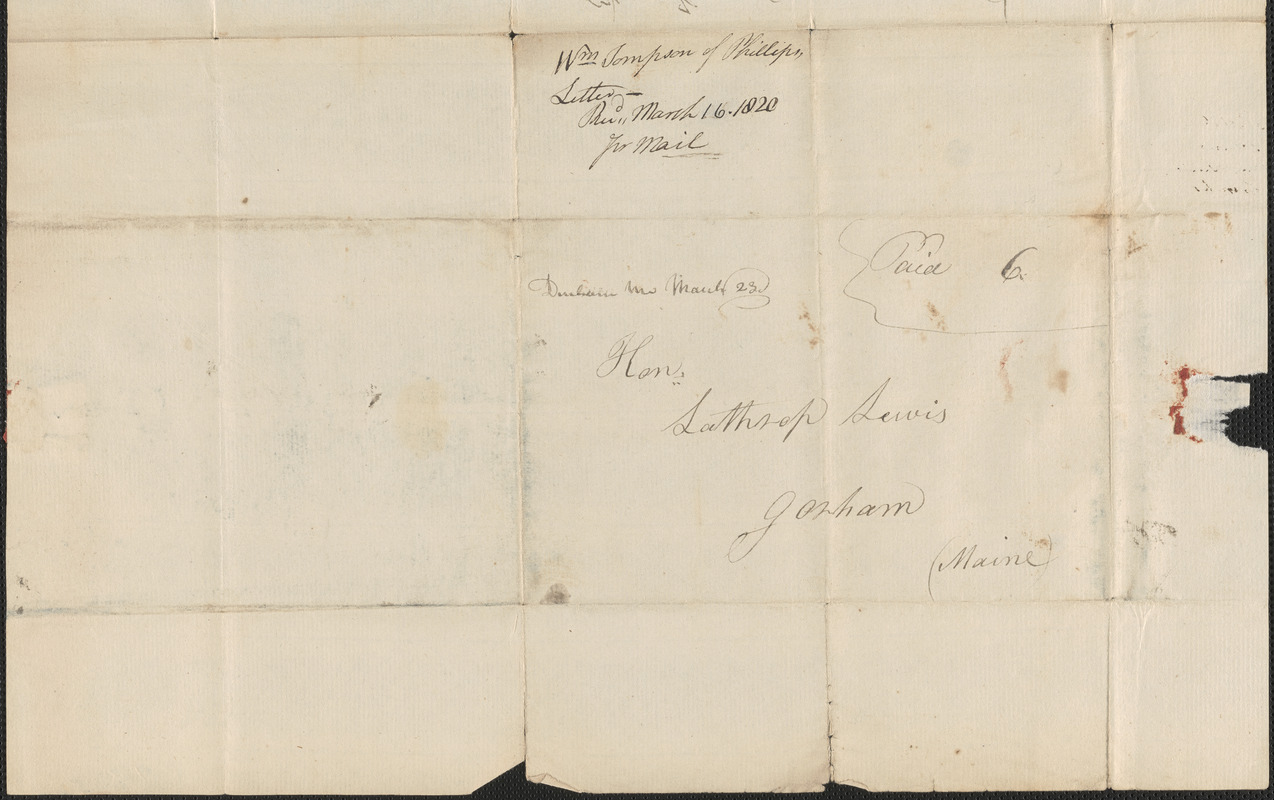 Wm Tompson of Phillips,
Letter —
Recd,, March 16. 1820
Pr Mail
Paid 6.
Me March 23d
Hon.
Lathrop Lewis
Gorham
(Maine)